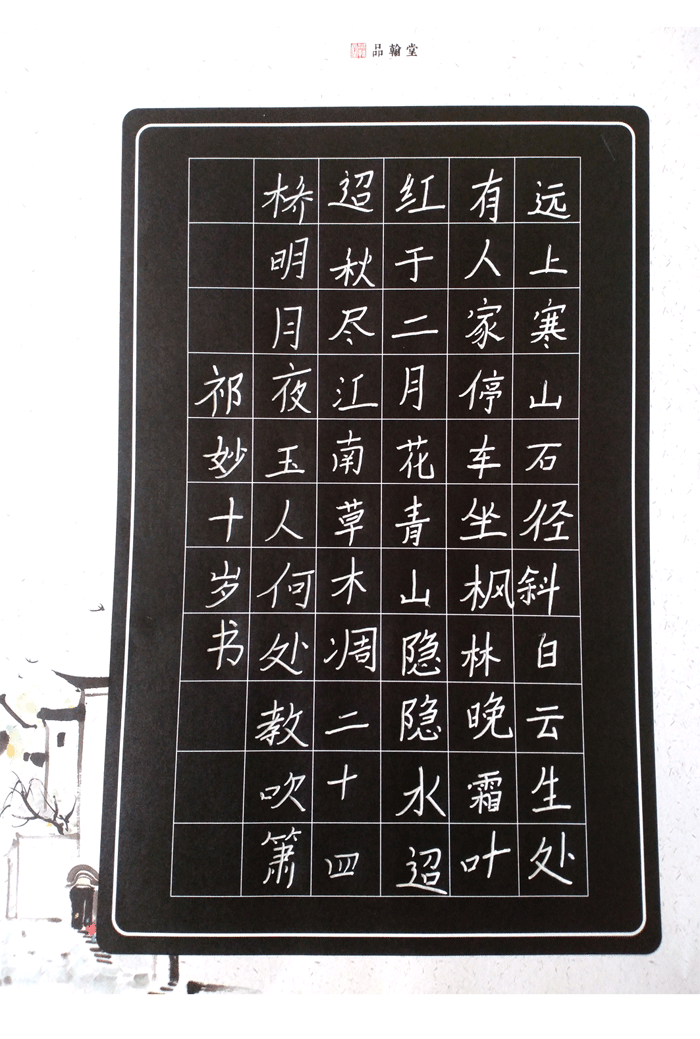 品翰堂
远上寒山石径斜白云生处
有人家停车坐枫林晚霜叶
红于二月花青山隐隐水迢
迢秋尽江南草木凋二十四
桥明月夜玉人何处教吹箫
祁妙十岁书